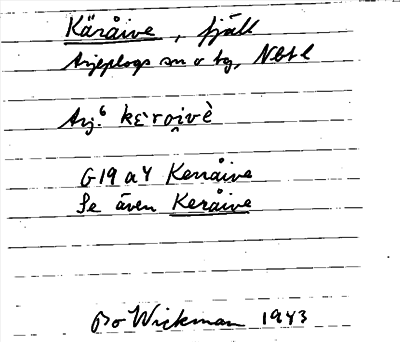 Käråive, fjäll
Arjeplogs sn o tg, Nbtl
Arj.⁶ kεroi̭vè
G19 a4 Kerråive
Se även Keråive
Bo Wickman 1943